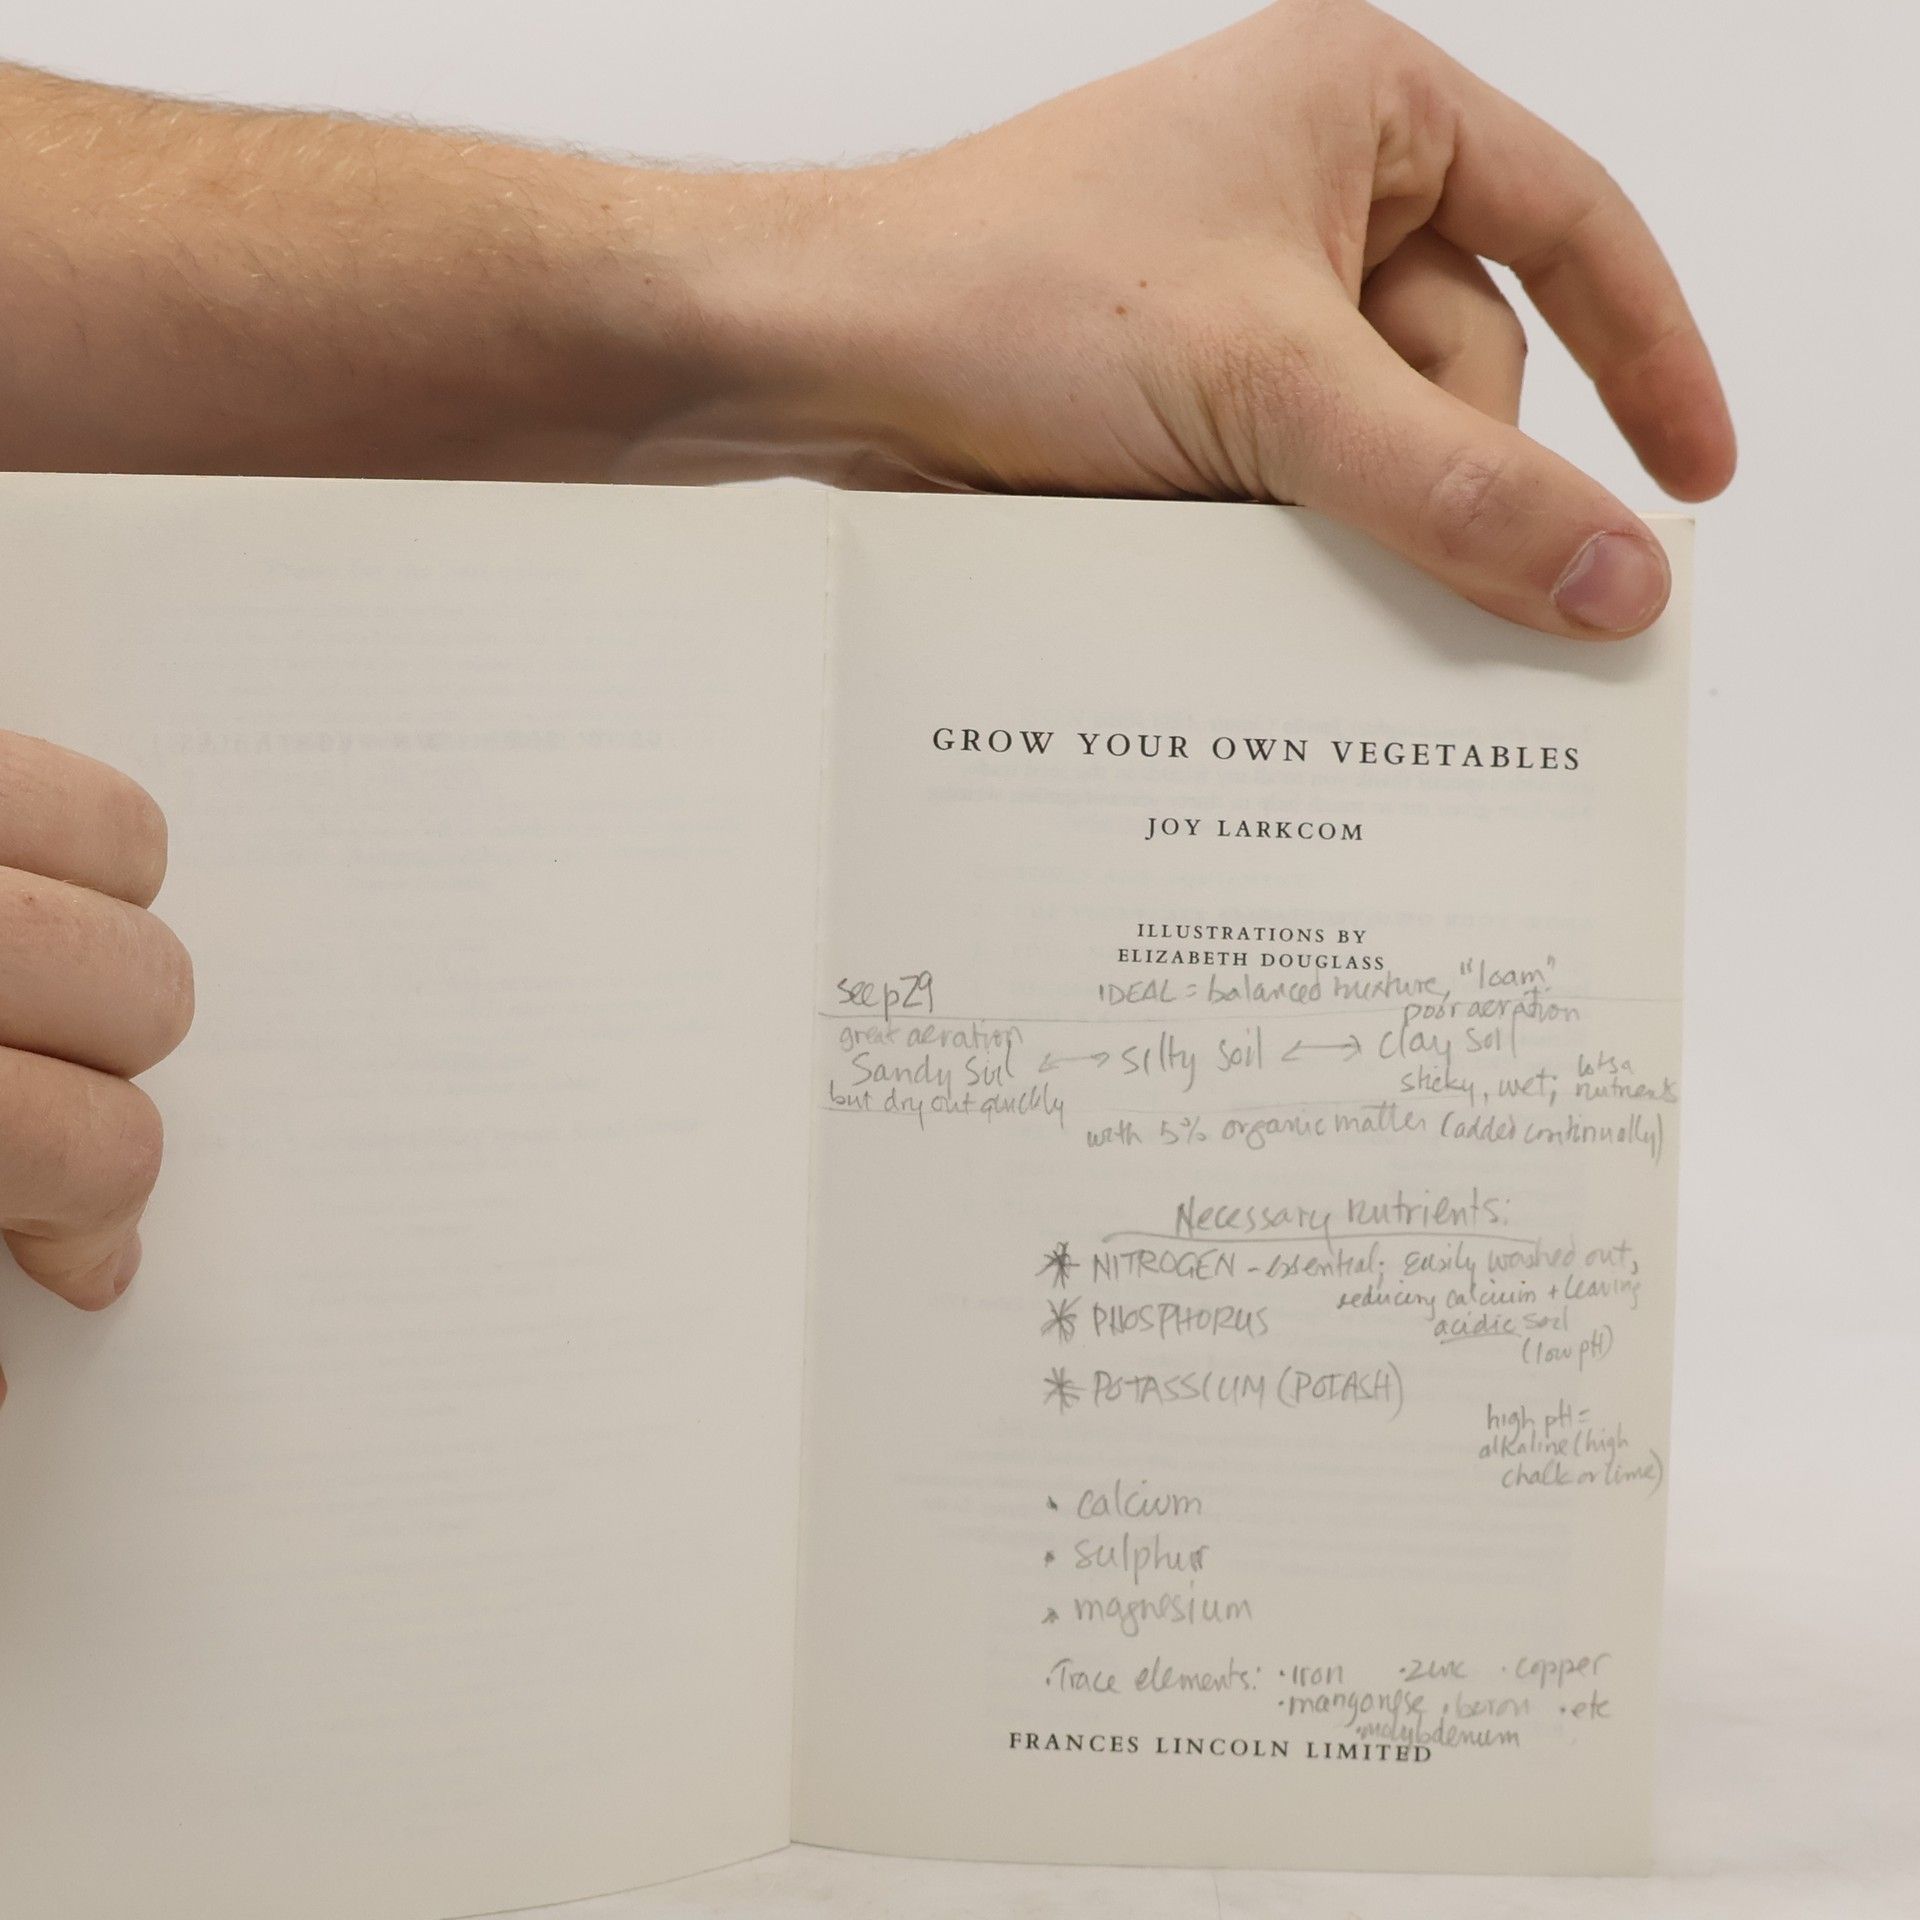 GROW YOUR OWN VEGETABLES
JOY LARKCOM
ILLUSTRATIONS BY
ELIZABETH DOUGLASS
see p29
IDEAL = balanced mixture, "loam"
great aeration
poor aeration
Sandy soil ⟷ silty soil ⟷ clay soil
but dry out quickly
sticky, wet; lotsa nutrients
with 5% organic matter (added continually)
Necessary nutrients:
* NITROGEN - essential; easily washed out,
reducing calcium + leaving
acidic soil
(low pH)
* PHOSPHORUS
* POTASSIUM (POTASH)
high pH =
alkaline (high
chalk or lime)
• calcium
• sulphur
• magnesium
• Trace elements: • iron • zinc • copper
• manganese • boron • etc
• molybdenum
FRANCES LINCOLN LIMITED